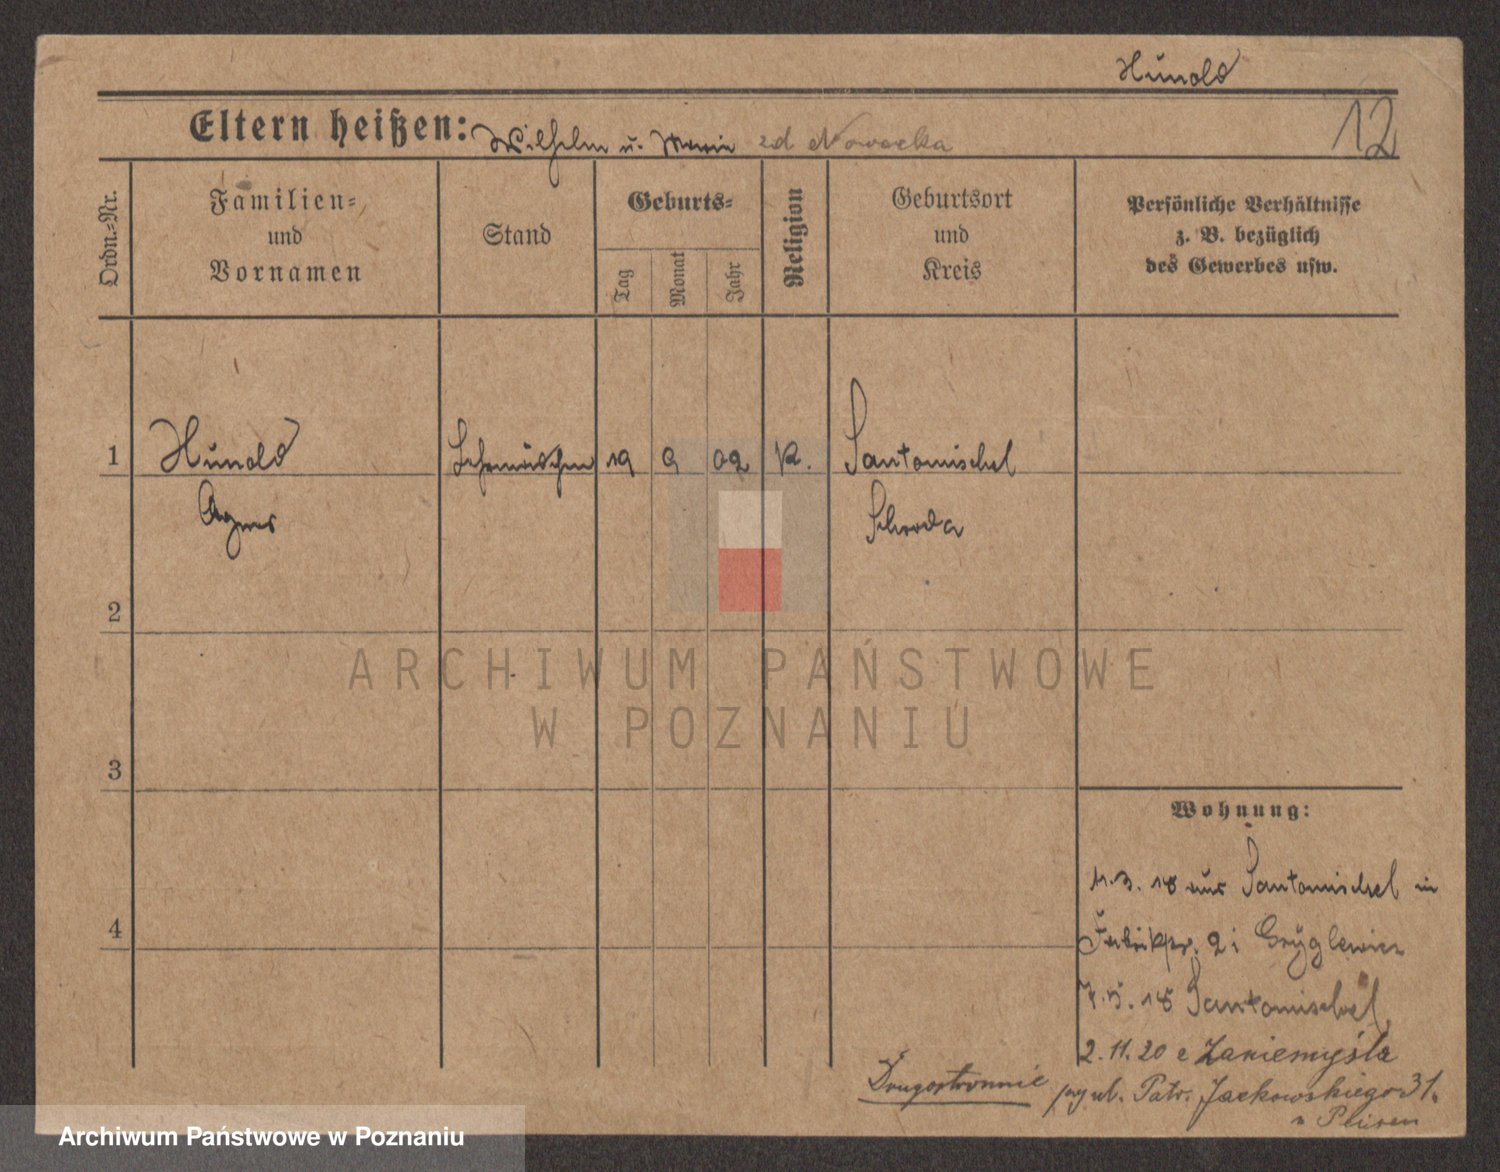 Hunold
12
Eltern heißen: Wilhelm u. Maria zd Nowacka
Ordn.-Nr.
Familien-
und
Vornamen
Stand
Geburts-
Tag
Monat
Jahr
Religion
Geburtsort
und
Kreis
Persönliche Verhältnisse
z. B. bezüglich
des Gewerbes usw.
1 Hunold Lehrmädchen 19 9 02 K. Santomischel
Agnes Schroda
2
ARCHIWUM PAŃSTWOWE
W POZNANIU
3
Wohnung:
11.3.18 aus Santomischel in
4
Fabrikstr. 2 i Gryglewicz
7.5.18 Santomischel
2.11.20 z Zaniemyśla
Drugostronnie
przy ul. Patr. Jackowskiego 31.
Archiwum Państwowe w Poznaniu